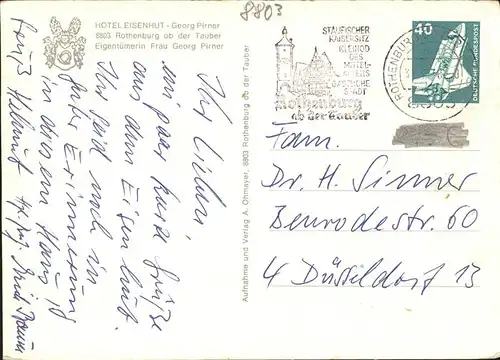 8803
HOTEL EISENHUT - Georg Pirner
8803 Rothenburg ob der Tauber
Eigentümerin Frau Georg Pirner
STAUFISCHER
KAISERSITZ
KLEINOD
DES
MITTEL-
ALTERS
GASTLICHE
STADT
Rothenburg
ob der Tauber
ROTHENBURG
40
DEUTSCHE BUNDESPOST
Ihr Lieben,
ein paar kurze Grüße
aus dem Eisenhut.
Ihr seid noch in
guter Erinnerung
in diesem Haus!
Gruß Helmut
Aufnahme und Verlag A. Ohmayer, 8803 Rothenburg ob der Tauber
Fam.
Dr. H. Simmer
Benrodestr. 60
4 Düsseldorf 13